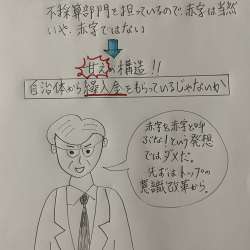 不採算部門を担っているので、赤字は当然
いや、赤字ではない
甘えの構造!!
自治体から繰入金をもらっているじゃないか
赤字を赤字と呼
ぶな!という発想
ではダメだ。
先ずはトップの
意識改革から。